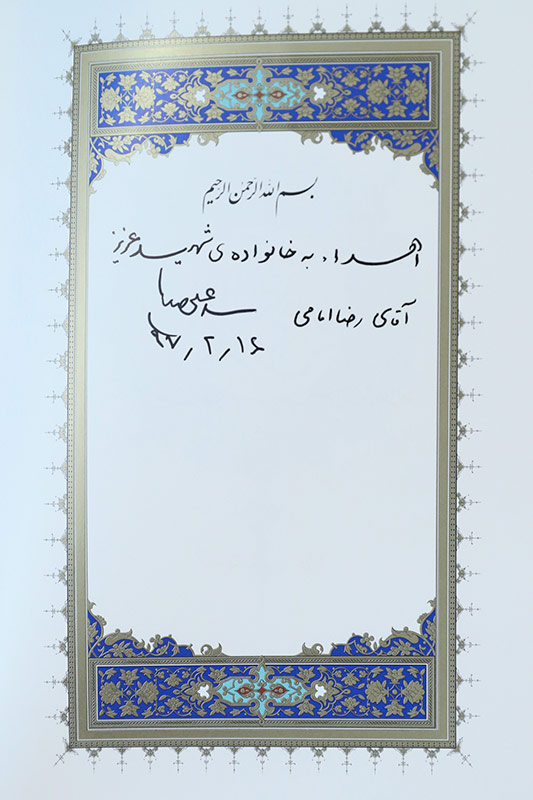 بسم الله الرحمن الرحیم
اهداء به خانواده‌ی شهید عزیز
آقای رضا امامی
۹۷٫۲٫۱۶